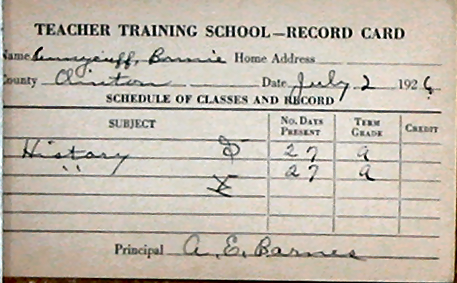 TEACHER TRAINING SCHOOL—RECORD CARD
Name Bonnie Home Address
County Clinton Date July 2 1926
SCHEDULE OF CLASSES AND RECORD
SUBJECT No. Days Present Term Grade Credit
History 27 a
" 27 a
Principal A. E. Barnes